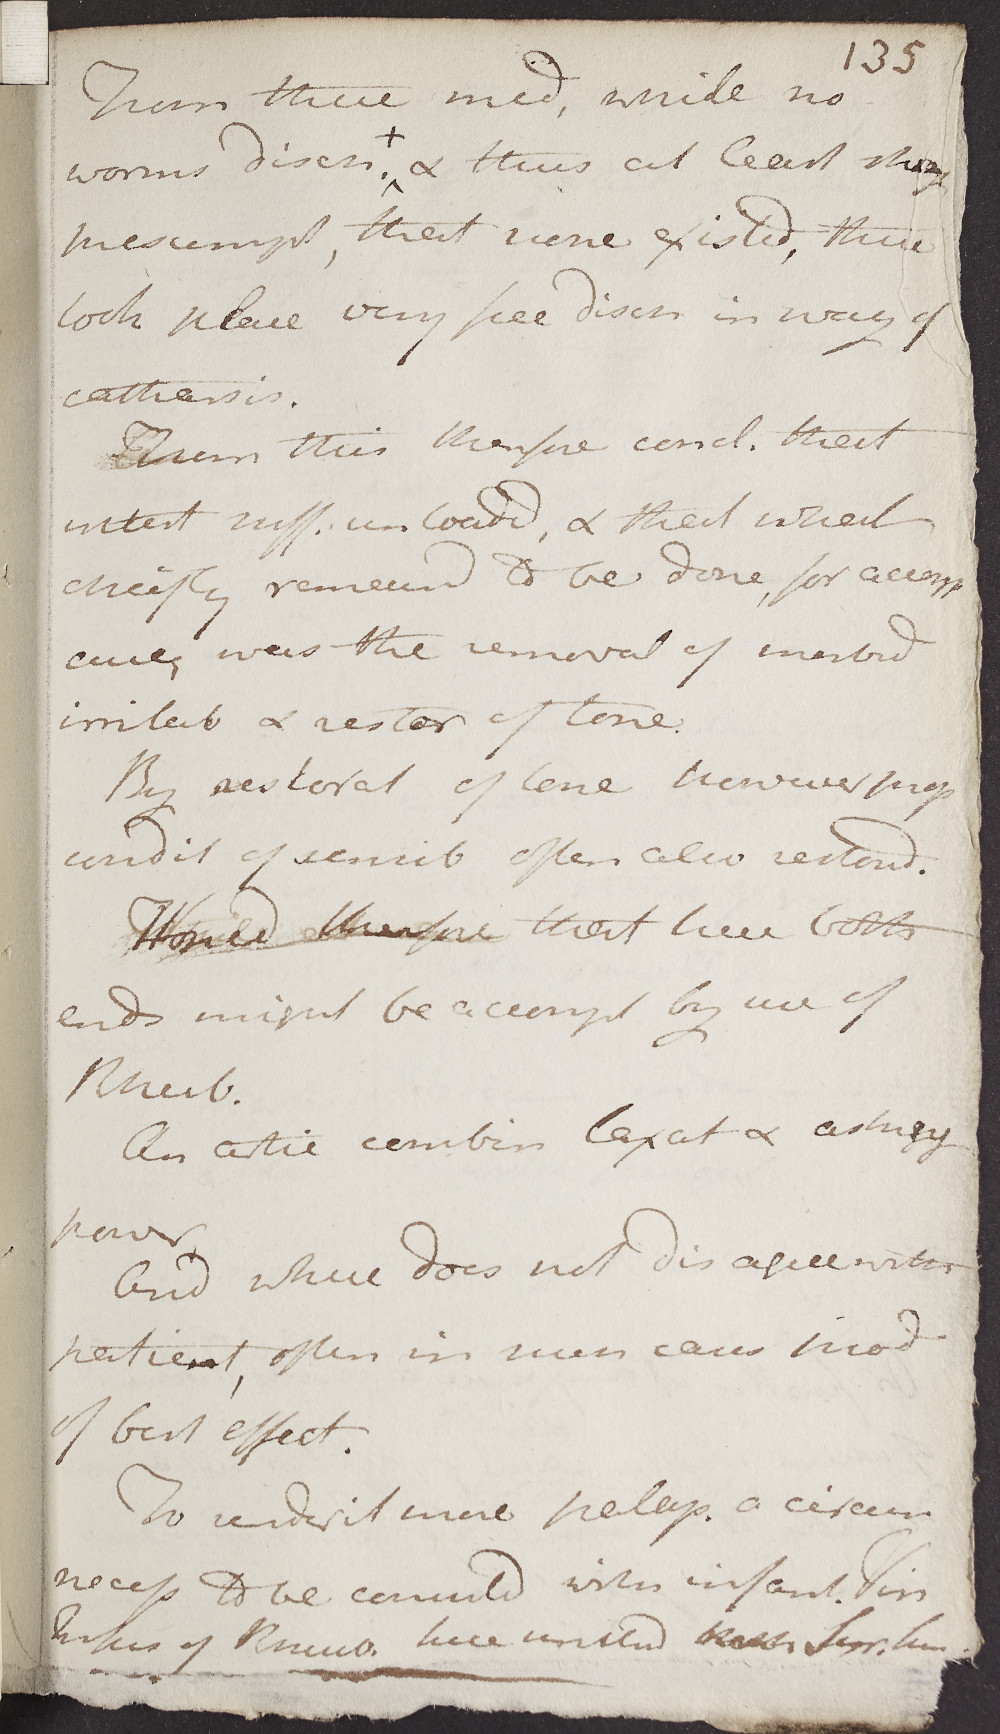 135
From these med, while no
worms disch. + & thus at least strong
presumpt, that none existed, there
took place very free disch in way of
catharsis.
From this therefore concl. that
intest suff. unloadd, & that what
chiefly remaind to be done, for accomp
cure, was the removal of morbid
irritab & restor of tone.
By restorat of tone however prop
condit of sensib often also restord.
Hoped therefore that here both
ends might be accompt by use of
Rheub.
An artic combin laxat & astring
power,
And where does not disagree with
patient, often in such cases prod
of best effect.
To render it more palap. a circum
necess to be consultd with infant. Vin
Infus of Rheub. here united with Syr. Sim